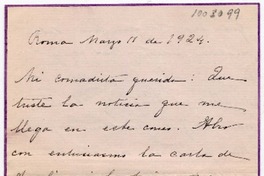 1003099
Roma Marzo 11 de 1924.
Mi comadrita querida: Que
triste la noticia que me
llega en este correo. Abro
con entusiasmo la carta de